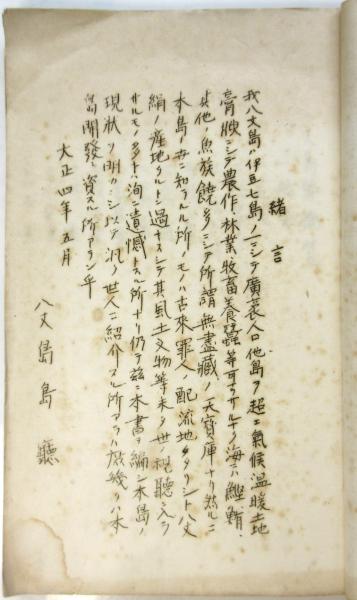 緒言
我八丈島ハ伊豆七島ノ一ニシテ廣袤人口他島ヲ超エ氣候温暖土地
膏腴ニシテ農作、林業、牧畜、養蠶等可ナラサルナク海ニハ鰹、鮪、
其他ノ魚族饒多ニシテ所謂無盡藏ノ天寶庫ナリ然ルニ
本島ノ世ニ知ラルル所ノモノハ古來罪人ノ配流地タリシト八丈
絹ノ産地タルトニ過キスシテ其風土文物等未タ世ノ視聽ニ入ラ
サルモノ多キハ洵ニ遺憾トスル所ナリ仍テ茲ニ本書ヲ編シ本島ノ
現狀ヲ明カニシ以テ汎ク世人ニ紹介スル所アラハ庶幾クハ本
島開發ニ資スル所アラン乎
大正四年五月
八丈島島廳